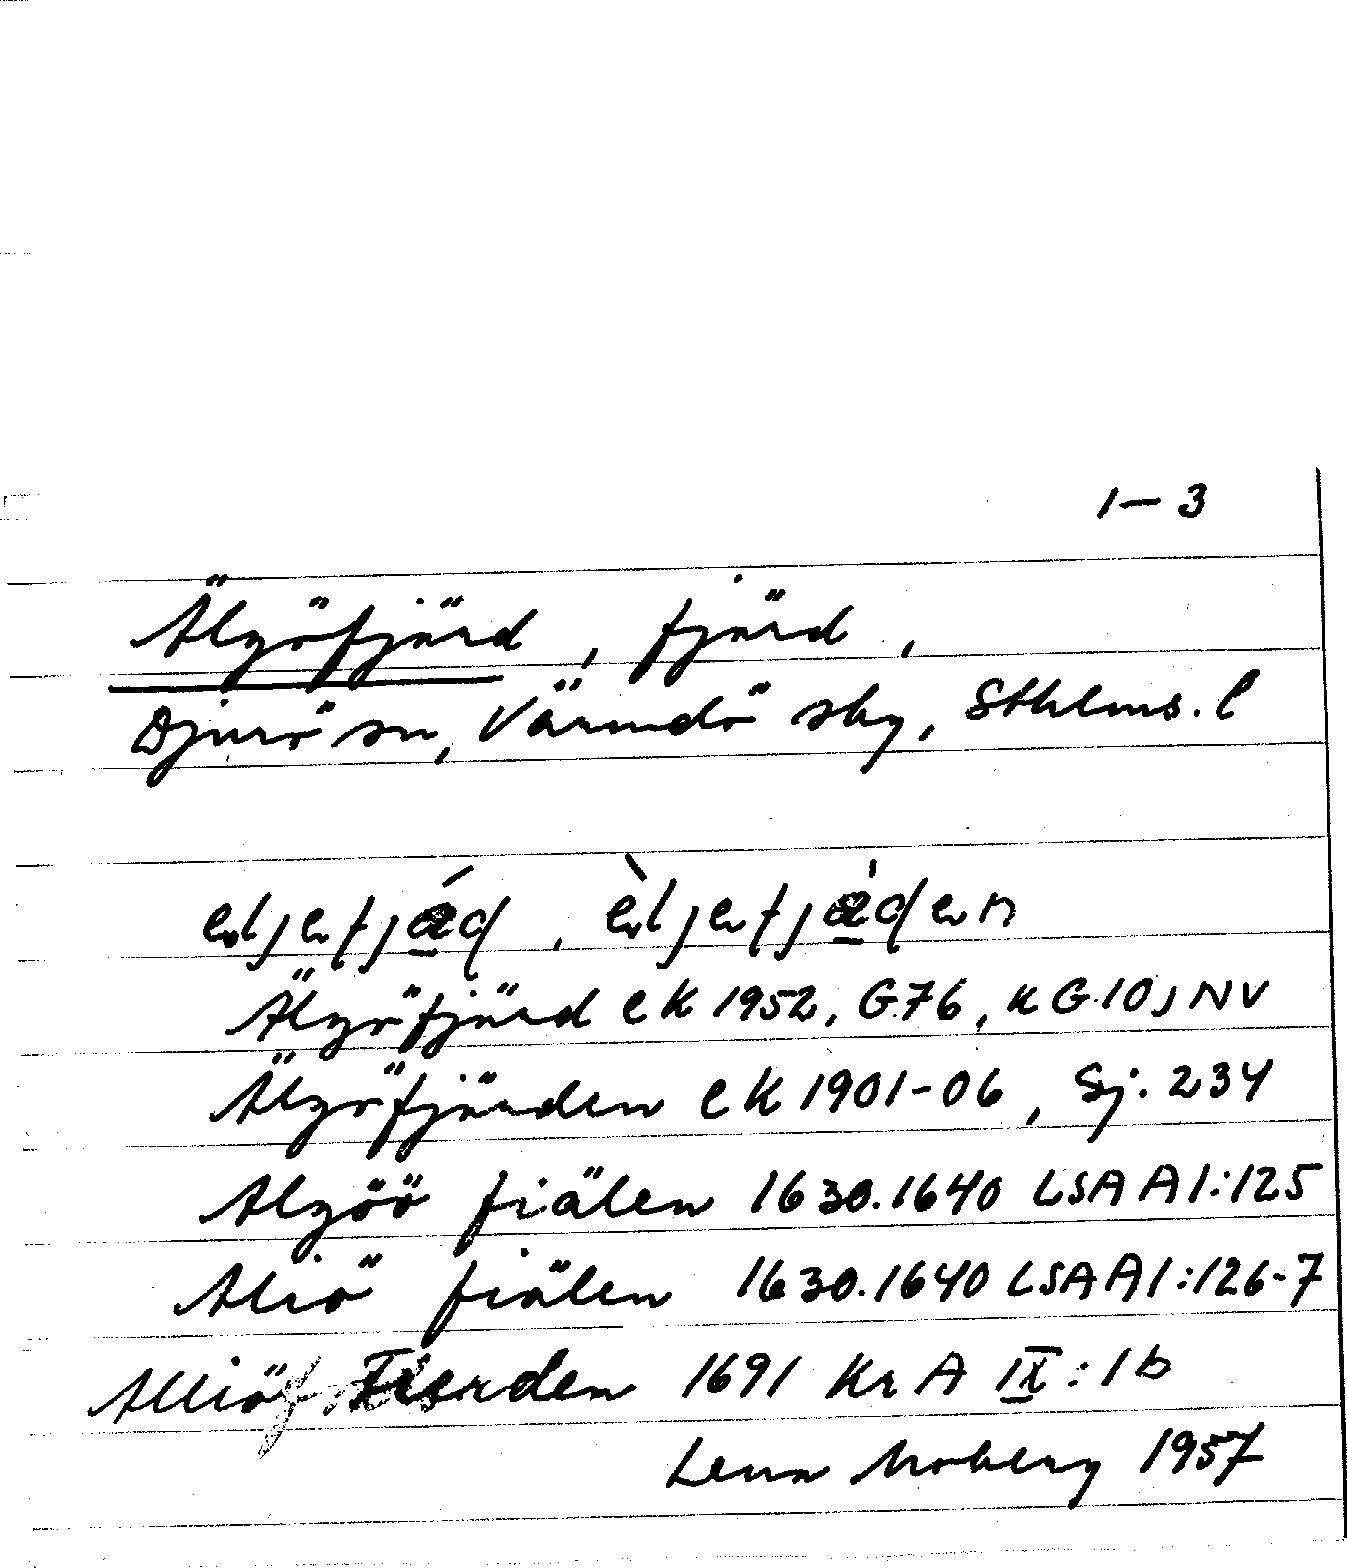 1–3
Älgöfjärd, fjärd,
Djurö sn, Värmdö sky, Sthlms. l
Älgöfjärd eK 1952, G76, KG10j NV
Älgöfjärden eK 1901-06, Sj. 234
Algöö fiälen 1630.1640 LSA A1:125
Aliö fiälen 1630.1640 LSA A1:126-7
Alliö Fierden 1691 KrA IX:1b
Lena Moberg 1957